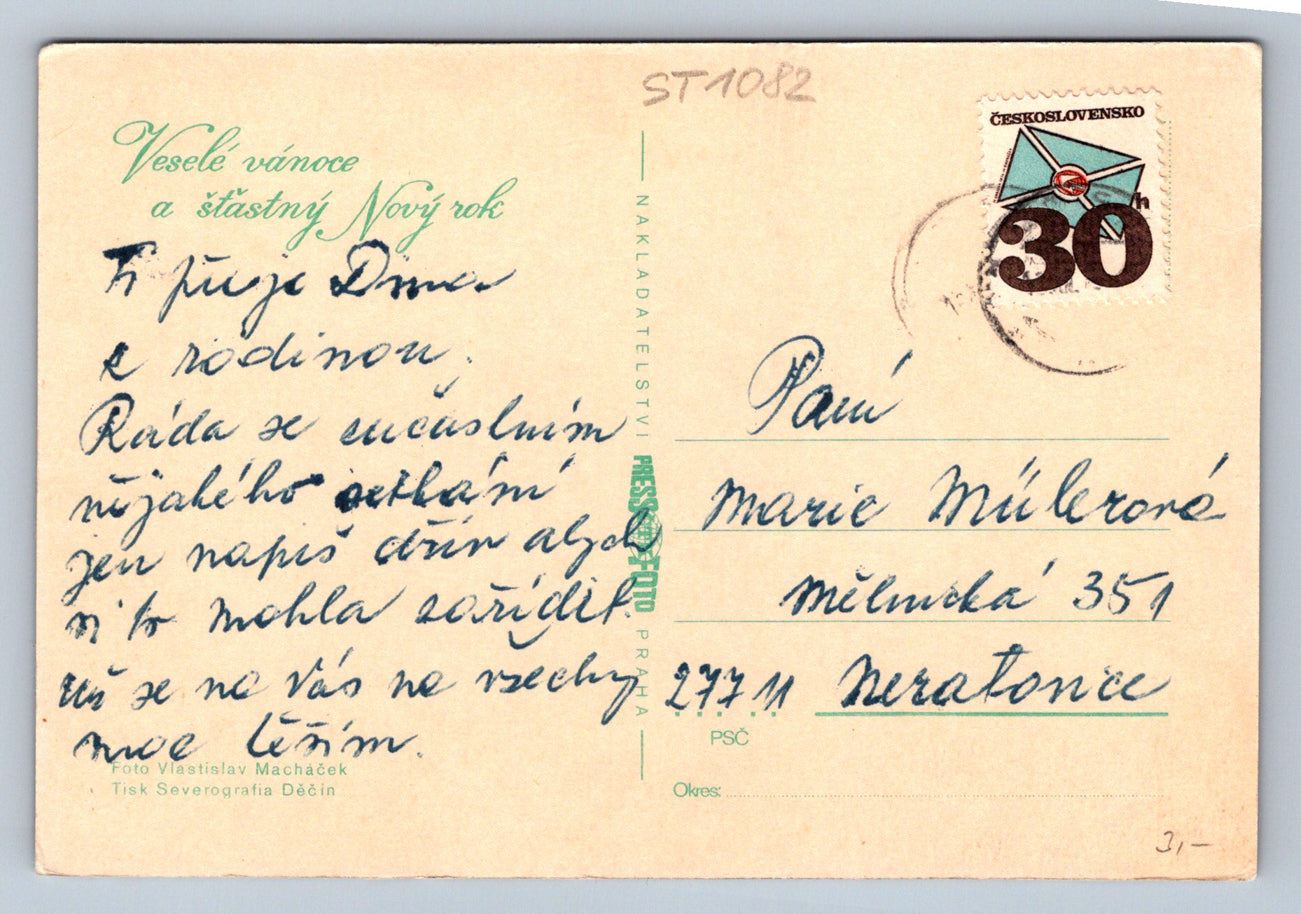 ST1082
ČESKOSLOVENSKO
30h
Veselé vánoce
a šťastný Nový rok
Ti přeje
s rodinou.
Ráda se zúčastním
nějakého setkání
jen napiš dřív abych
si to mohla zařídit.
už se na Vás na všechny
moc těším.
Foto Vlastislav Macháček
Tisk Severografia Děčín
NAKLADATELSTVÍ PRESSFOTO PRAHA
Paní
Marie Mülerová
Mělnická 351
277 11 Neratovice
PSČ
Okres:
3,-